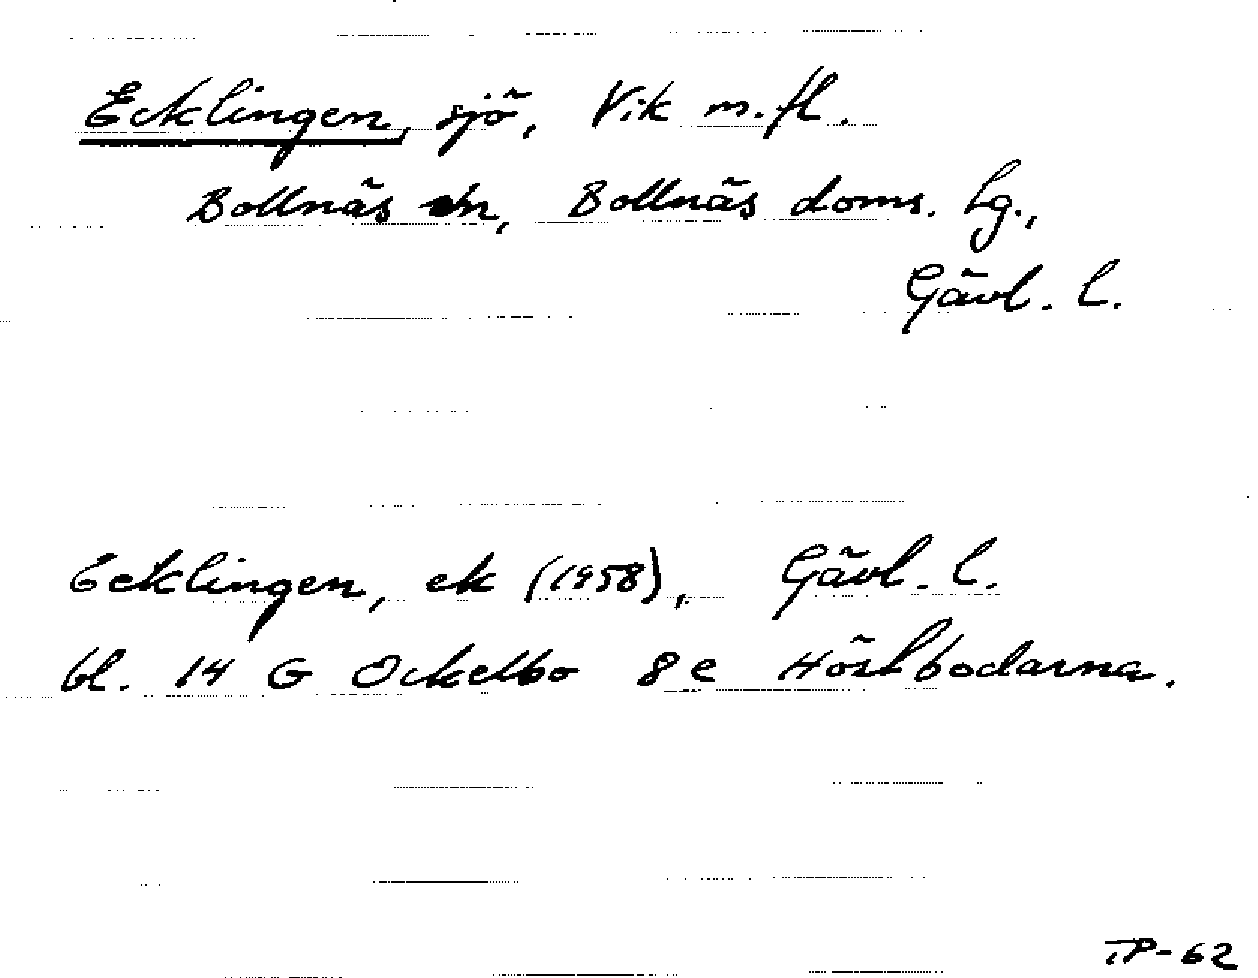 Ecklingen, sjö, Vik m.fl.
Bollnäs sn, Bollnäs doms. hg.,
Gävl. l.
Ecklingen, ek (1958), Gävl. l.
bl. 14 G Ockelbo 8 e Höskbodarna.
TP-62